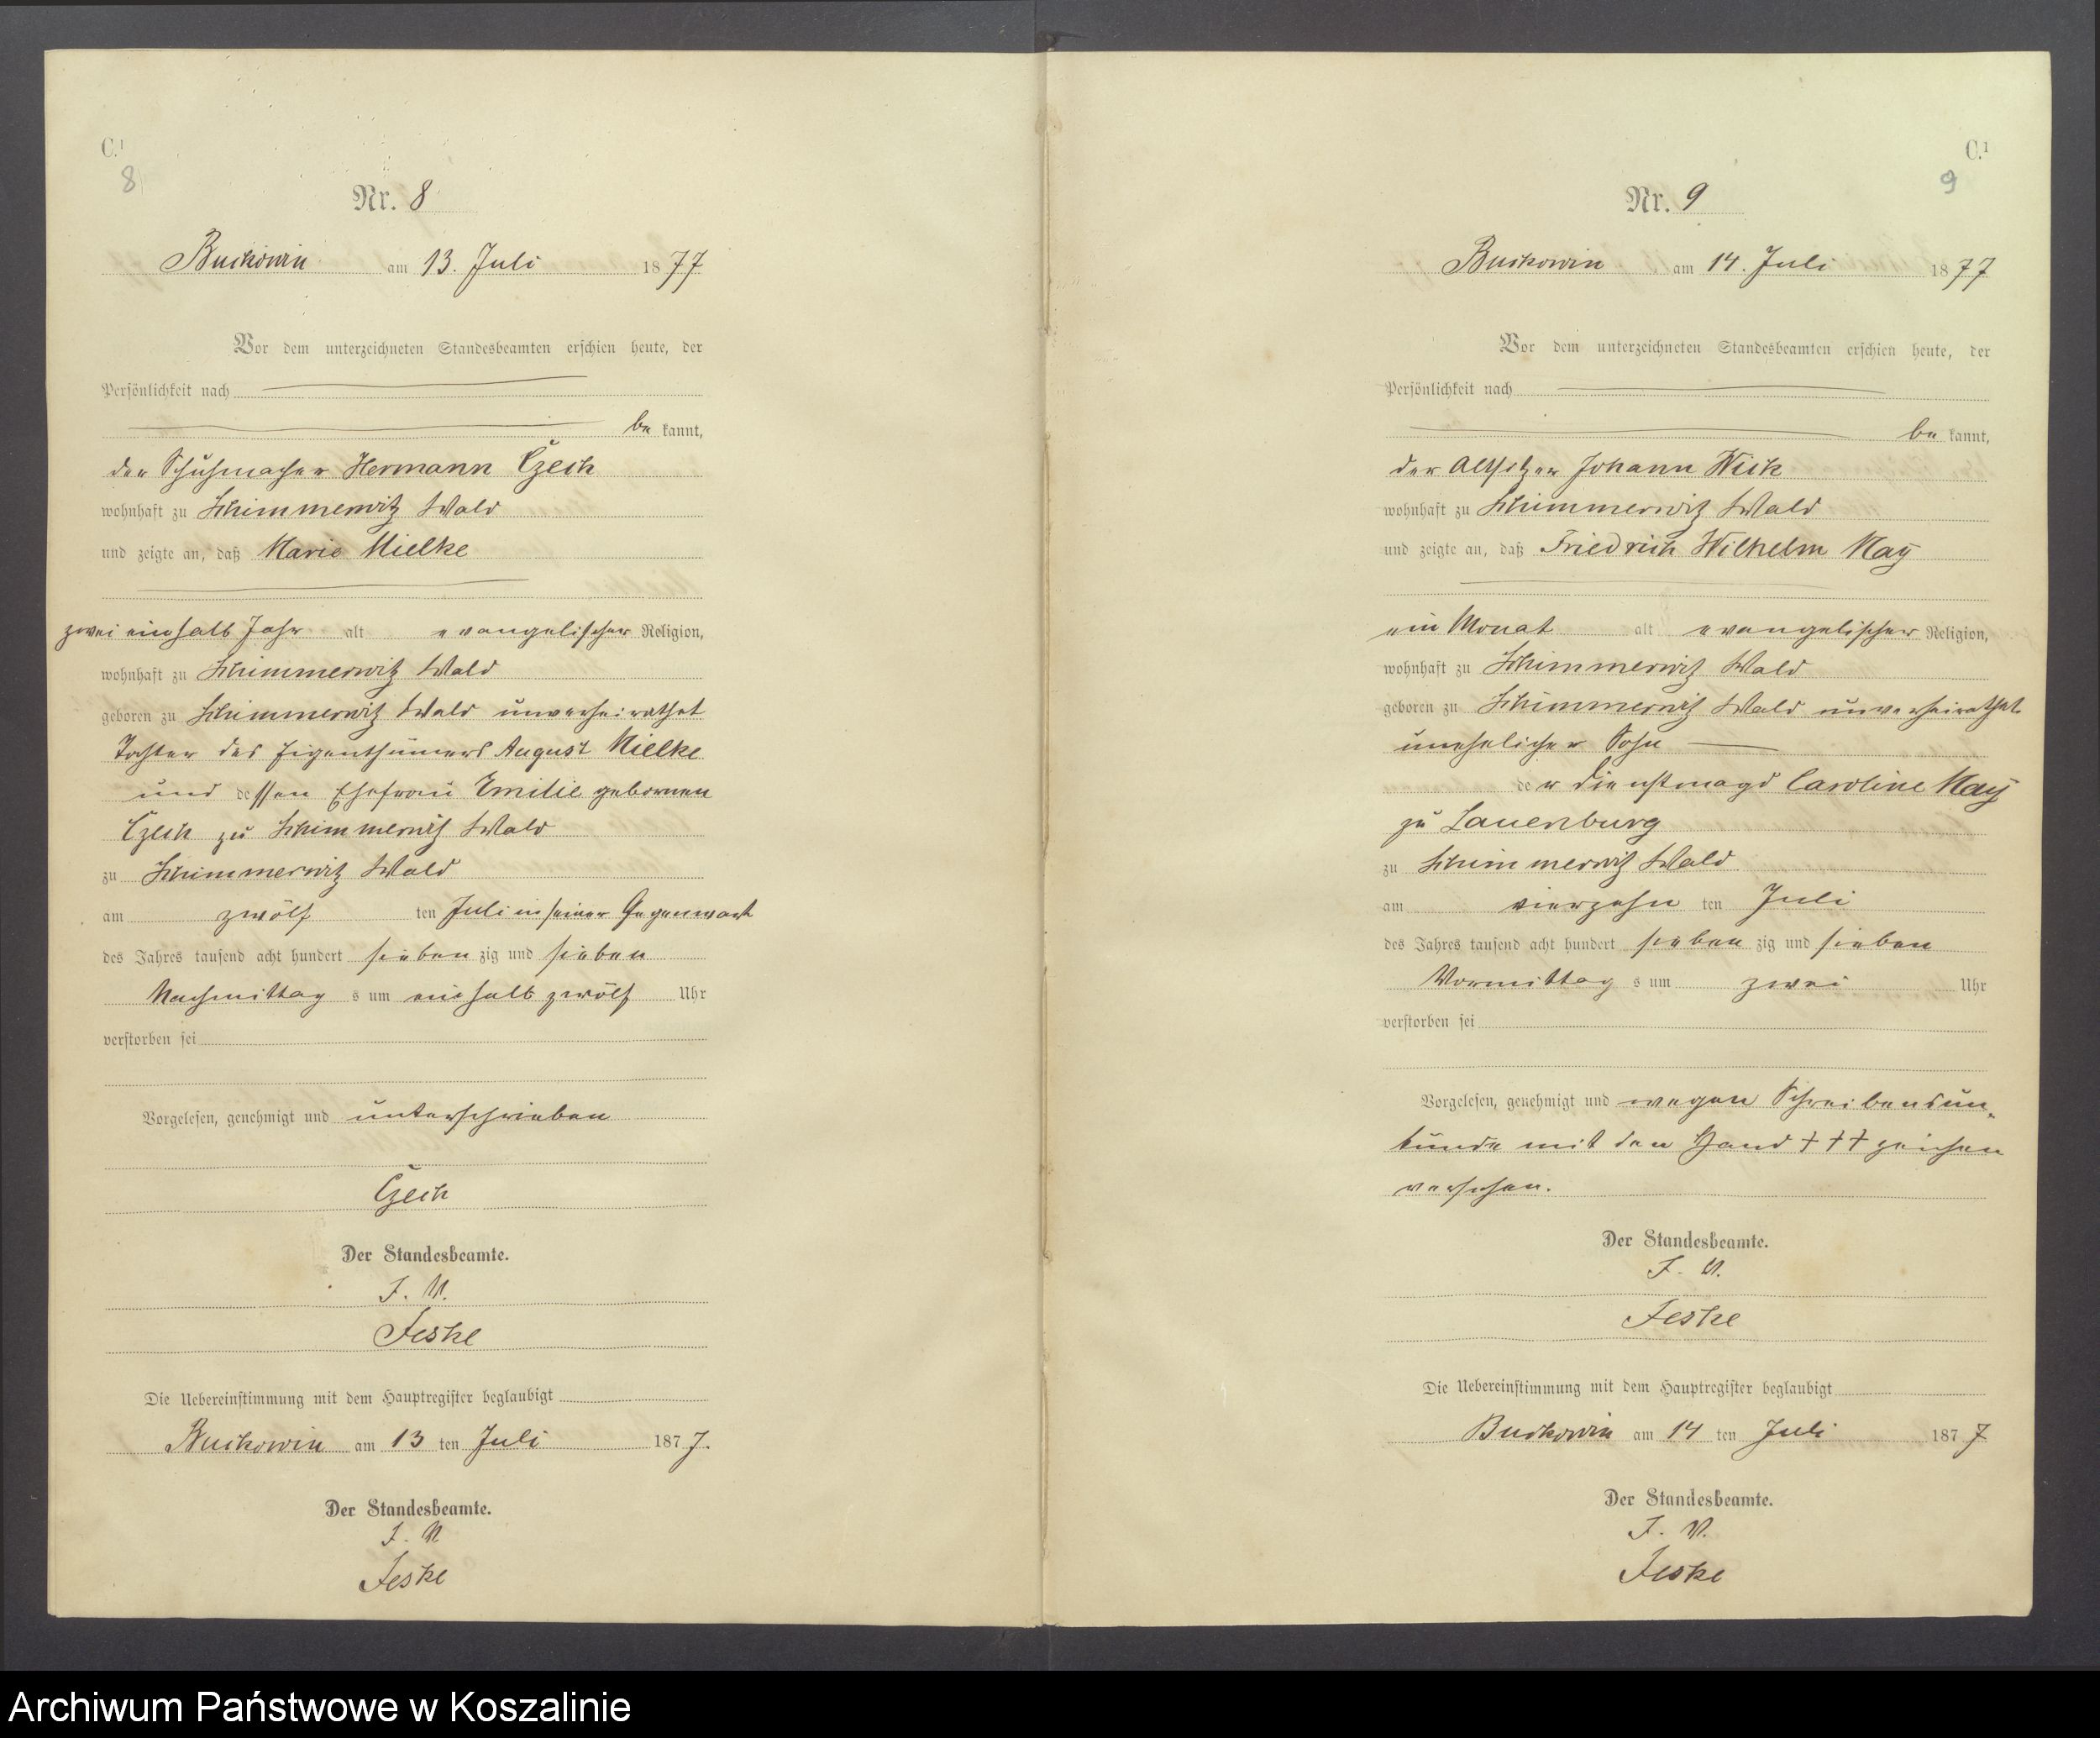 C.1
8
Nr. 8
Buckowin am 13. Juli 1877
Vor dem unterzeichneten Standesbeamten erschien heute, der
Persönlichkeit nach
be kannt,
der Schuhmacher Hermann Czech
wohnhaft zu Schimmerwitz Wald
und zeigte an, daß Marie Mielke
zwei einhalb Jahr alt evangelischer Religion,
wohnhaft zu Schimmerwitz Wald
geboren zu Schimmerwitz Wald unverheirathet
Tochter des Eigenthümers August Mielke
und dessen Ehefrau Emilie gebornen
Czech zu Schimmerwitz Wald
zu Schimmerwitz Wald
am zwölf ten Juli in seiner Gegenwart
des Jahres tausend acht hundert sieben zig und sieben
Nachmittag s um einhalb zwölf Uhr
verstorben sei
Vorgelesen, genehmigt und unterschrieben
Czech
Der Standesbeamte.
J. V.
Jeske
Die Uebereinstimmung mit dem Hauptregister beglaubigt
Buckowin am 13 ten Juli 1877.
Der Standesbeamte.
J. V.
Jeske
C.1
9
Nr. 9
Buckowin am 14. Juli 1877
Vor dem unterzeichneten Standesbeamten erschien heute, der
Persönlichkeit nach
be kannt,
der Altsitzer Johann Wick
wohnhaft zu Schimmerwitz Wald
und zeigte an, daß Friedrich Wilhelm May
ein Monat alt evangelischer Religion,
wohnhaft zu Schimmerwitz Wald
geboren zu Schimmerwitz Wald unverheirathet
unehelicher Sohn
der Dienstmagd Caroline May
zu Lauenburg
zu Schimmerwitz Wald
am vierzehn ten Juli
des Jahres tausend acht hundert sieben zig und sieben
Vormittag s um zwei Uhr
verstorben sei
Vorgelesen, genehmigt und wegen Schreibensun-
kunde mit den Hand +++ zeichen
versehen.
Der Standesbeamte.
J. V.
Jeske
Die Uebereinstimmung mit dem Hauptregister beglaubigt
Buckowin am 14 ten Juli 1877
Der Standesbeamte.
J. V.
Jeske
Archiwum Państwowe w Koszalinie